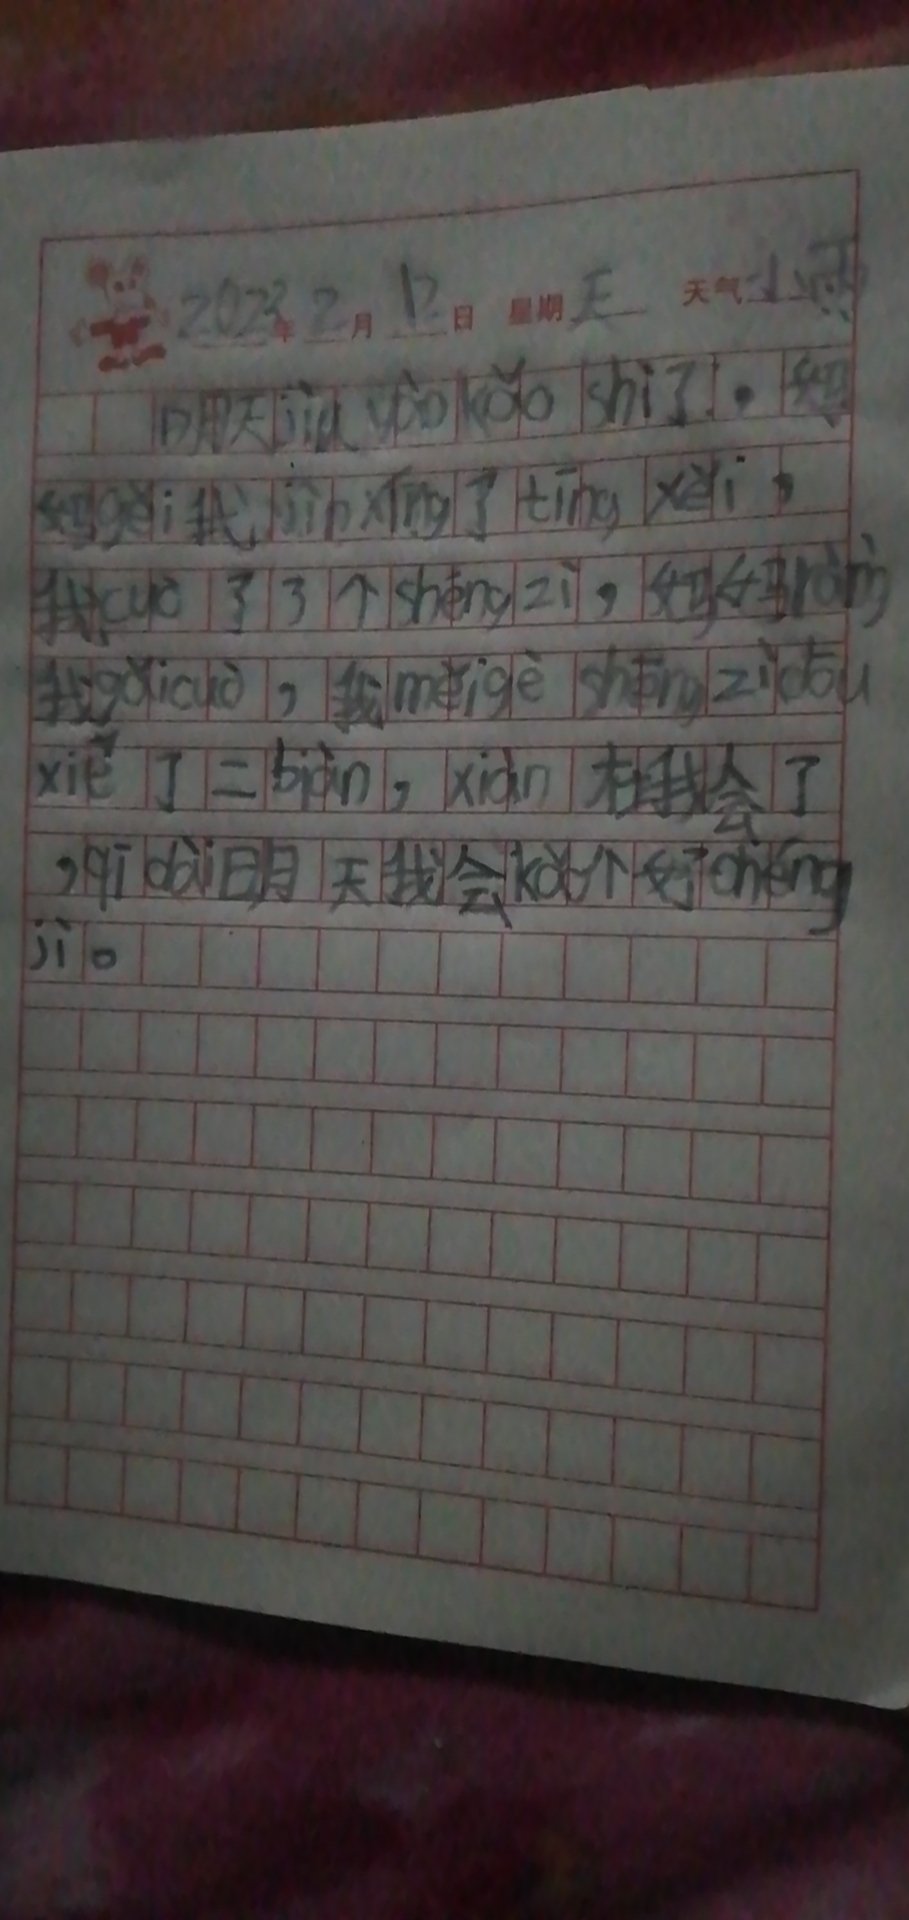 2023年2月12日 星期天 天气小雨
明天jiù yào kǎo shì了。妈
妈gěi我jìn xíng了tīng xěi，
我cuò了3个shēng zì，妈妈ràng
我gǎi cuò，我měi gè shēng zì dōu
xiě了二biàn，xiàn在我会了
，qī dài明天我会kǎo个好chéng
jì。